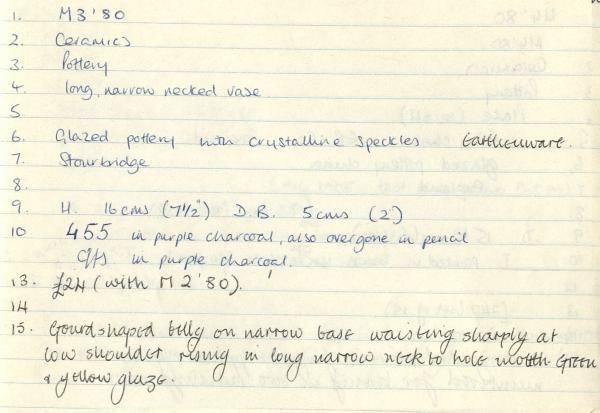 1. M3'80
2. Ceramics
3. Pottery
4. long, narrow necked vase
5
6. Glazed pottery with crystalline speckles Earthenware.
7. Stourbridge
8.
9. H. 16cms (7½") D.B. 5cms (2")
10 455 in purple charcoal, also overgone in pencil
in purple charcoal.
13. £24 (with M2'80).
14
15. Gourdshaped belly on narrow base waisting sharply at
low shoulder rising in long narrow neck to hole mouth Green
& yellow glaze.